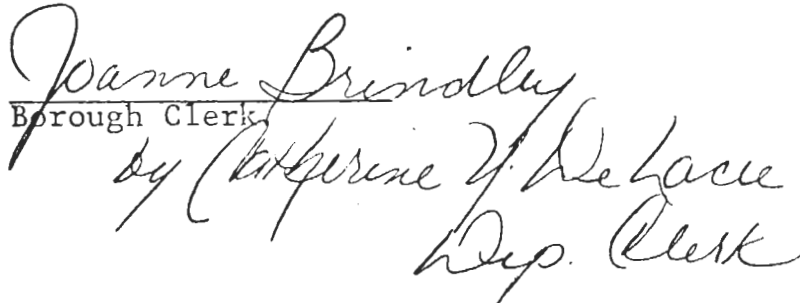 Joanne Brindley
Borough Clerk
by Catherine Y. DeLacie
Dep. Clerk